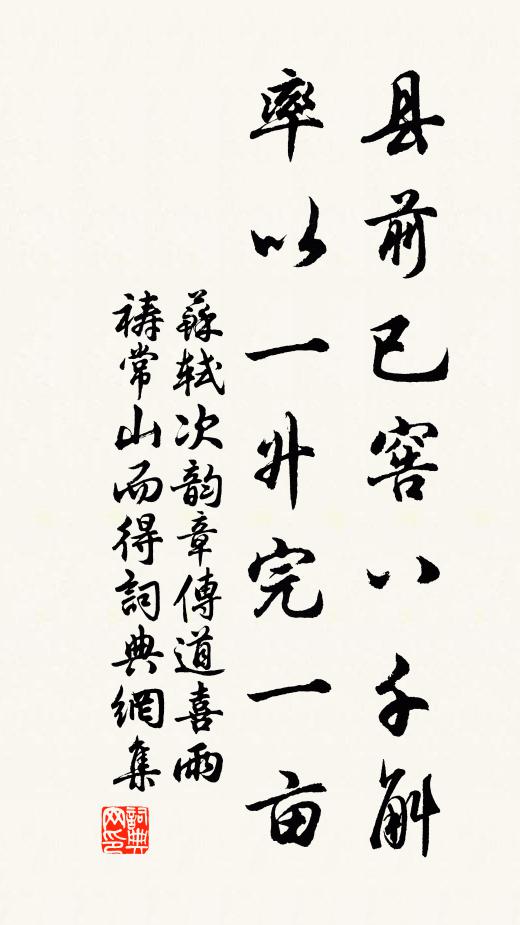 县前已窖八千斛
率以一升完一亩
蘇軾次韵章傳道喜雨
禱常山而得詞典網集
詞典网印